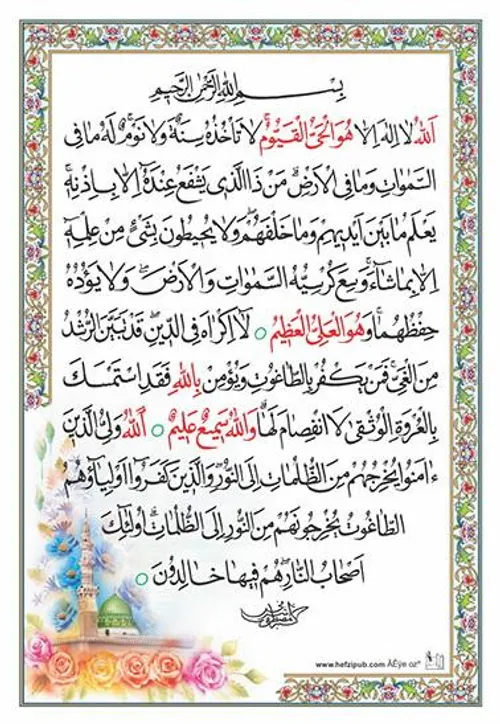 بِسْمِ اللهِ الرَّحْمنِ الرَّحیمِ
اَللهُ لا اِلهَ اِلّا هُوَ الْحَیُّ الْقَیُّومُ لا تَأْخُذُهُ سِنَةٌ وَلا نَوْمٌ لَهُ ما فِی
السَّمواتِ وَما فِی الْاَرْضِ مَنْ ذَا الَّذی یَشْفَعُ عِنْدَهُ اِلّا بِاِذْنِهِ
یَعْلَمُ ما بَیْنَ اَیْدیهِمْ وَما خَلْفَهُمْ وَلا یُحیطُونَ بِشَیْءٍ مِنْ عِلْمِهِ
اِلّا بِما شاءَ وَسِعَ کُرْسِیُّهُ السَّمواتِ وَالْاَرْضَ وَلا یَؤُدُهُ
حِفْظُهُما وَهُوَ الْعَلِیُّ الْعَظیمُ لا اِکْراهَ فِی الدّینِ قَدْ تَبَیَّنَ الرُّشْدُ
مِنَ الْغَیِّ فَمَنْ یَکْفُرْ بِالطّاغُوتِ وَیُؤْمِنْ بِاللهِ فَقَدِ اسْتَمْسَکَ
بِالْعُرْوَةِ الْوُثْقی لَا انْفِصامَ لَها وَاللهُ سَمیعٌ عَلیمٌ اَللهُ وَلِیُّ الَّذینَ
ءامَنُوا یُخْرِجُهُمْ مِنَ الظُّلُماتِ اِلَی النُّورِ وَالَّذینَ کَفَرُوا اَوْلِیاؤُهُمُ
الطّاغُوتُ یُخْرِجُونَهُمْ مِنَ النُّورِ اِلَی الظُّلُماتِ اُولئِکَ
اَصْحابُ النّارِ هُمْ فیها خالِدُونَ
www.hefzipub.com